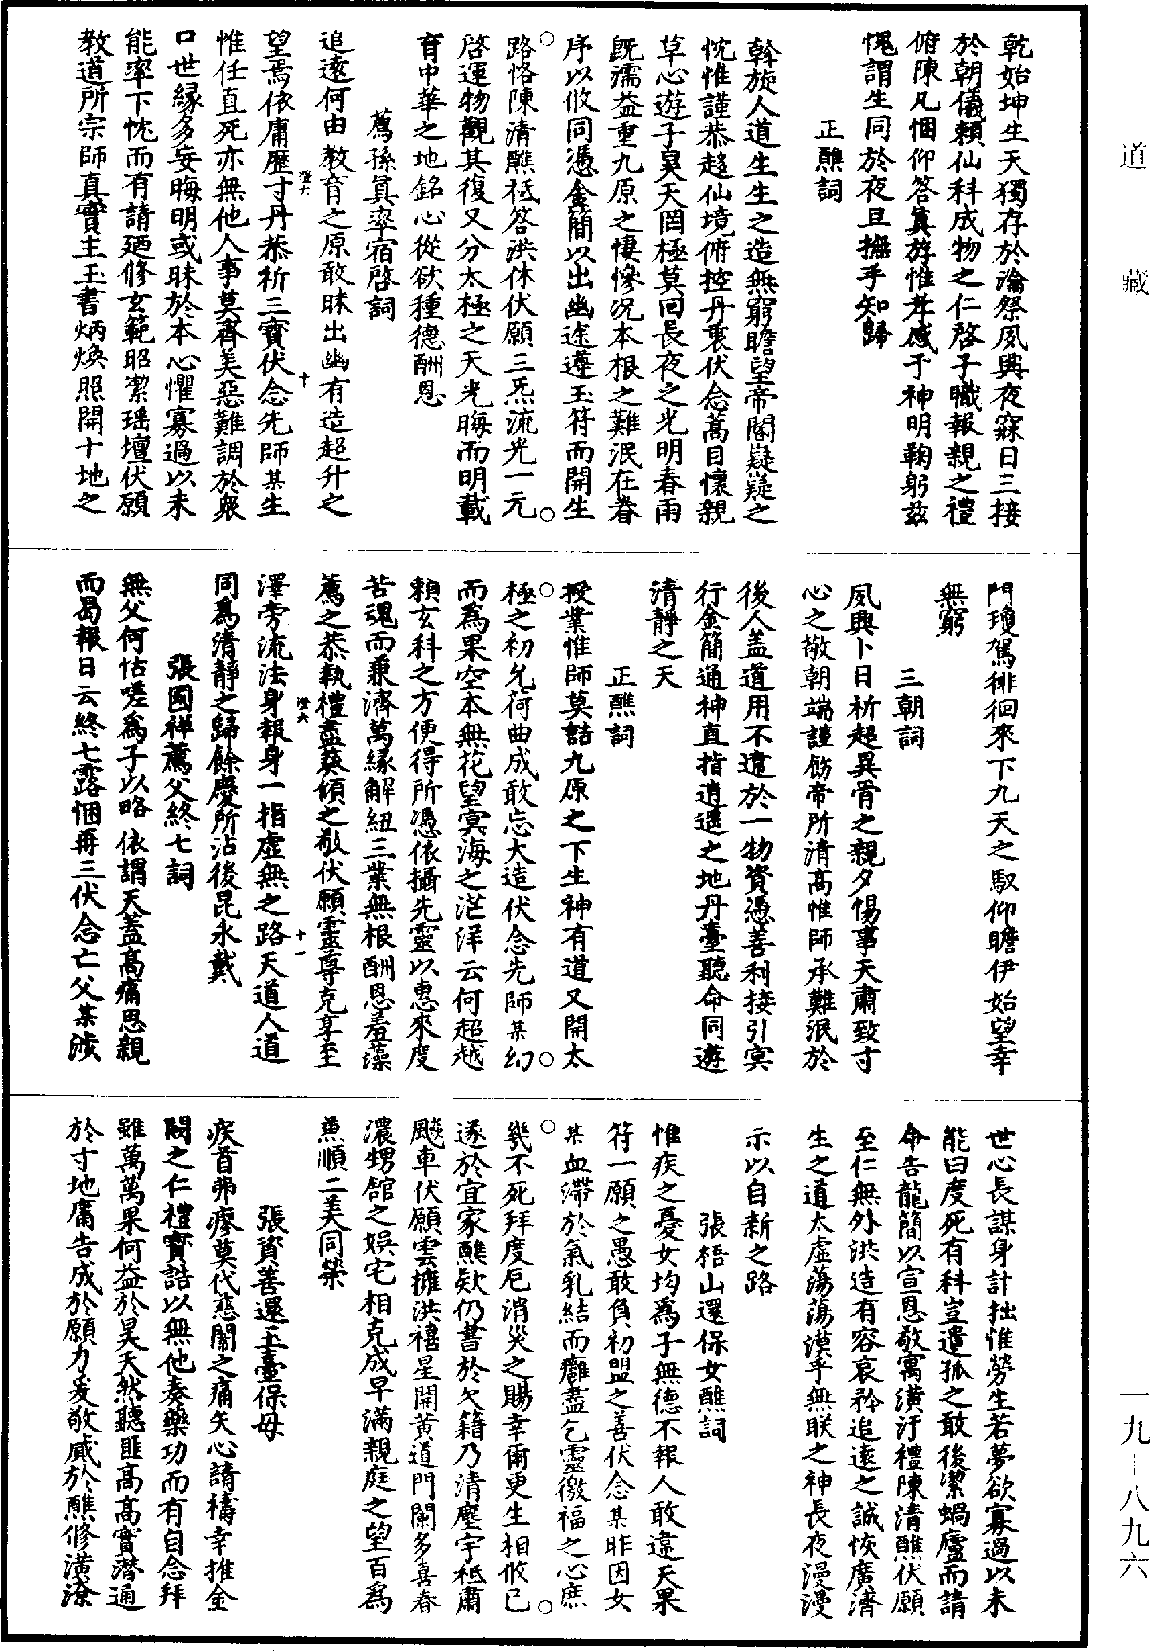 道藏
乾始坤生天獨存於瀹祭夙興夜寐日三接
於朝儀賴仙科成物之仁啓子職報親之禮
俯陳凡悃仰答真游惟孝感于神明鞠躬兹
愧謂生同於夜旦撫乎知歸
正醮詞
斡旋人道生生之造無窮瞻望帝閽嶷嶷之
忱惟謹恭趍仙境俯控丹衷伏念蒿目懷親
草心遊子昊天罔極莫回長夜之光明春雨
既濡益重九原之悽慘况本根之難泯在眷
序以攸同憑金簡以出幽途遵玉符而開生
路恪陳清醮祗答洪休伏願三炁流光一元
啓運物觀其復又分太極之天光晦而明載
育中華之地銘心從欲種德酬恩
薦孫真率宿啓詞
追遠何由教育之原敢昧出幽有造超升之
望焉依庸歷寸丹恭祈三寶伏念先師某生
惟任直死亦無他人事莫齊美惡難調於衆
口世緣多妄晦明或昧於本心懼寡過以未
能率下忱而有請廼修玄範昭潔瑶壇伏願
教道所宗師真實主玉書炳煥照開十地之
澄六
十
門瓊駕徘徊來下九天之馭仰瞻伊始望幸
無窮
三朝詞
夙興卜日祈超異骨之親夕惕事天肅致寸
心之敬朝端謹飭帝所清高惟師承難泯於
後人盖道用不遺於一物資憑善利接引冥
行金簡通神直指逍遥之地丹臺聽命同遊
清靜之天
正醮詞
授業惟師莫詰九原之下生神有道又開太
極之初允荷曲成敢忘大造伏念先師某幻
而為果空本無花望冥海之茫洋云何超越
賴玄科之方便得所憑依攝先靈以惠來度
苦魂而兼濟萬緣解紐三業無根酬恩羞藻
薦之恭執禮盡葵傾之敬伏願靈尊克享至
澤旁流法身報身一指虚無之路天道人道
同爲清靜之歸餘慶所沾後昆永戴
澄六
十一
張國祥薦父終七詞
無父何怙嗟爲子以略依謂天蓋高痛思親
而曷報日云終七露悃再三伏念亡父某涉
世心長謀身計拙惟勞生若夢欲寡過以未
能曰度死有科豈遺孤之敢後潔蝸廬而請
命告龍簡以宣恩敬寓潢汙禮陳清醮伏願
至仁無外洪造有容哀矜追遠之誠恢廣濟
生之道太虚蕩蕩漠乎無联之神長夜漫漫
示以自新之路
張梧山還保女醮詞
惟疾之憂女均爲子無德不報人敢違天果
符一願之愚敢負初盟之善伏念某昨因女
某血滯於氣乳結而癰盡乞靈徼福之心庶
幾不死拜度厄消災之賜幸爾更生相攸已
遂於宜家醮欵仍書於欠籍乃清塵宇祗肅
飈車伏願雲擁洪禧星開黄道門闌多喜春
濃甥舘之娱宅相克成早滿親庭之望百爲
無順二美同榮
張資善還玉臺保母
疾首弗瘳莫代慈闈之痛矢心請禱幸推金
闕之仁禮實詰以無他奏藥功而有自念拜
雖萬萬果何益於昊天然聽匪高高實潛通
於寸地庸告成於願力爰敬咸於醮修潢潦
一九—八九六